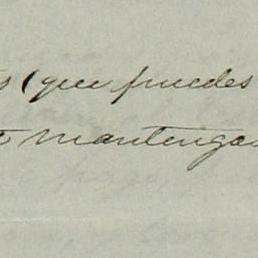 (que puedes
mantengas